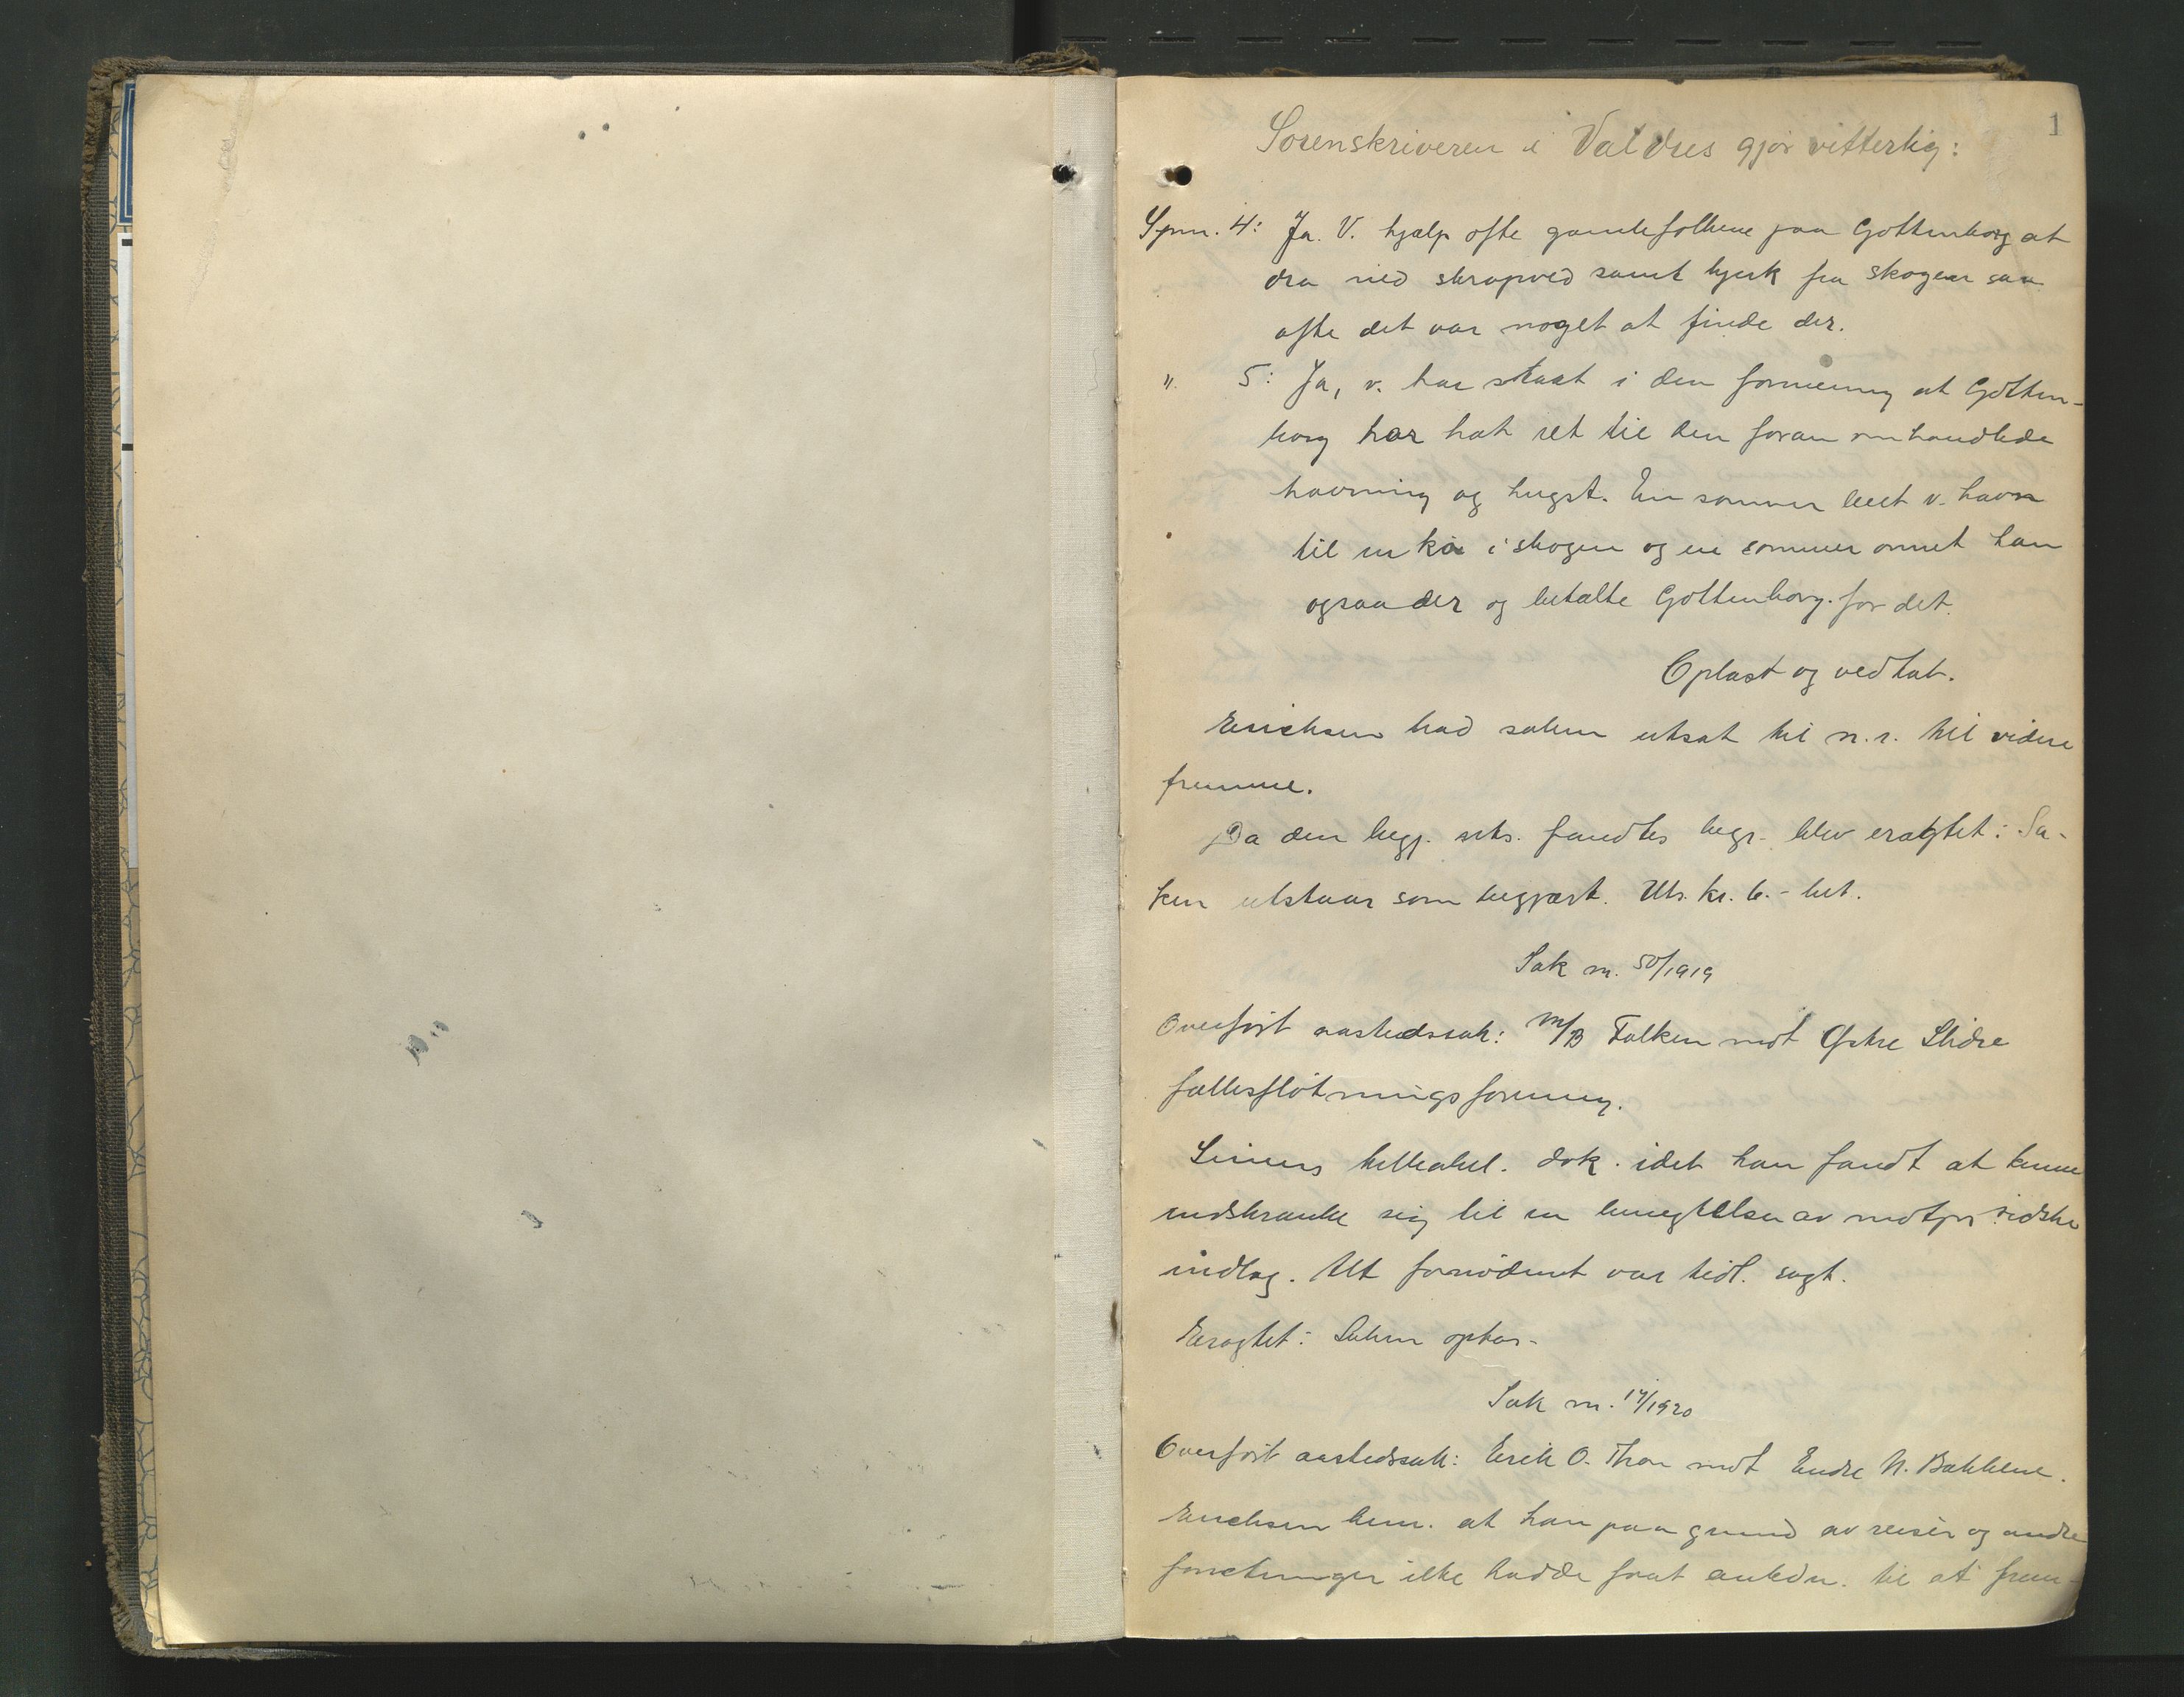 1
Sorenskriveren i Valdres gjør vitterlig:
Spm. 4: Ja. V. hjalp ofte gamlefolkene paa Gottenborg at
dra ned skrapved samt bjerk fra skogen saa
ofte det var noget at finde der.
" 5: Ja, v. har staat i den formening at Gotten-
borg har hat ret til den foran omhandlede
havning og hugst. En sommer leiet v. havn
til en ko i skogen og en sommer onnet han
ogsaa der og betalte Gottenborg. for det.
Oplæst og vedtat.
Erichsen bad saken utsat til n.r. til videre
fremme.
Da den begj. uts. fandtes begr. blev eragtet: Sa-
ken utstaar som begjært. Uts. kr. 6.- bet.
Sak nr. 50/1919
Overført aastedssak: M/B Falken mot Østre Slidre
fællesfløtningsforening.
dok. idet han fandt at kunne
indskrænke sig til en benegtelse av motp. sidste
indlæg. Alt fornødent var tidl. sagt.
Eragtet: Saken optas.
Sak nr. 17/1920
Overført aastedssak: Erik O. Thon mot Endre N. Bakkene.
Erichsen bem. at han paa grund av reiser og andre
forretninger ikke hadde faat anledn. til at frem-